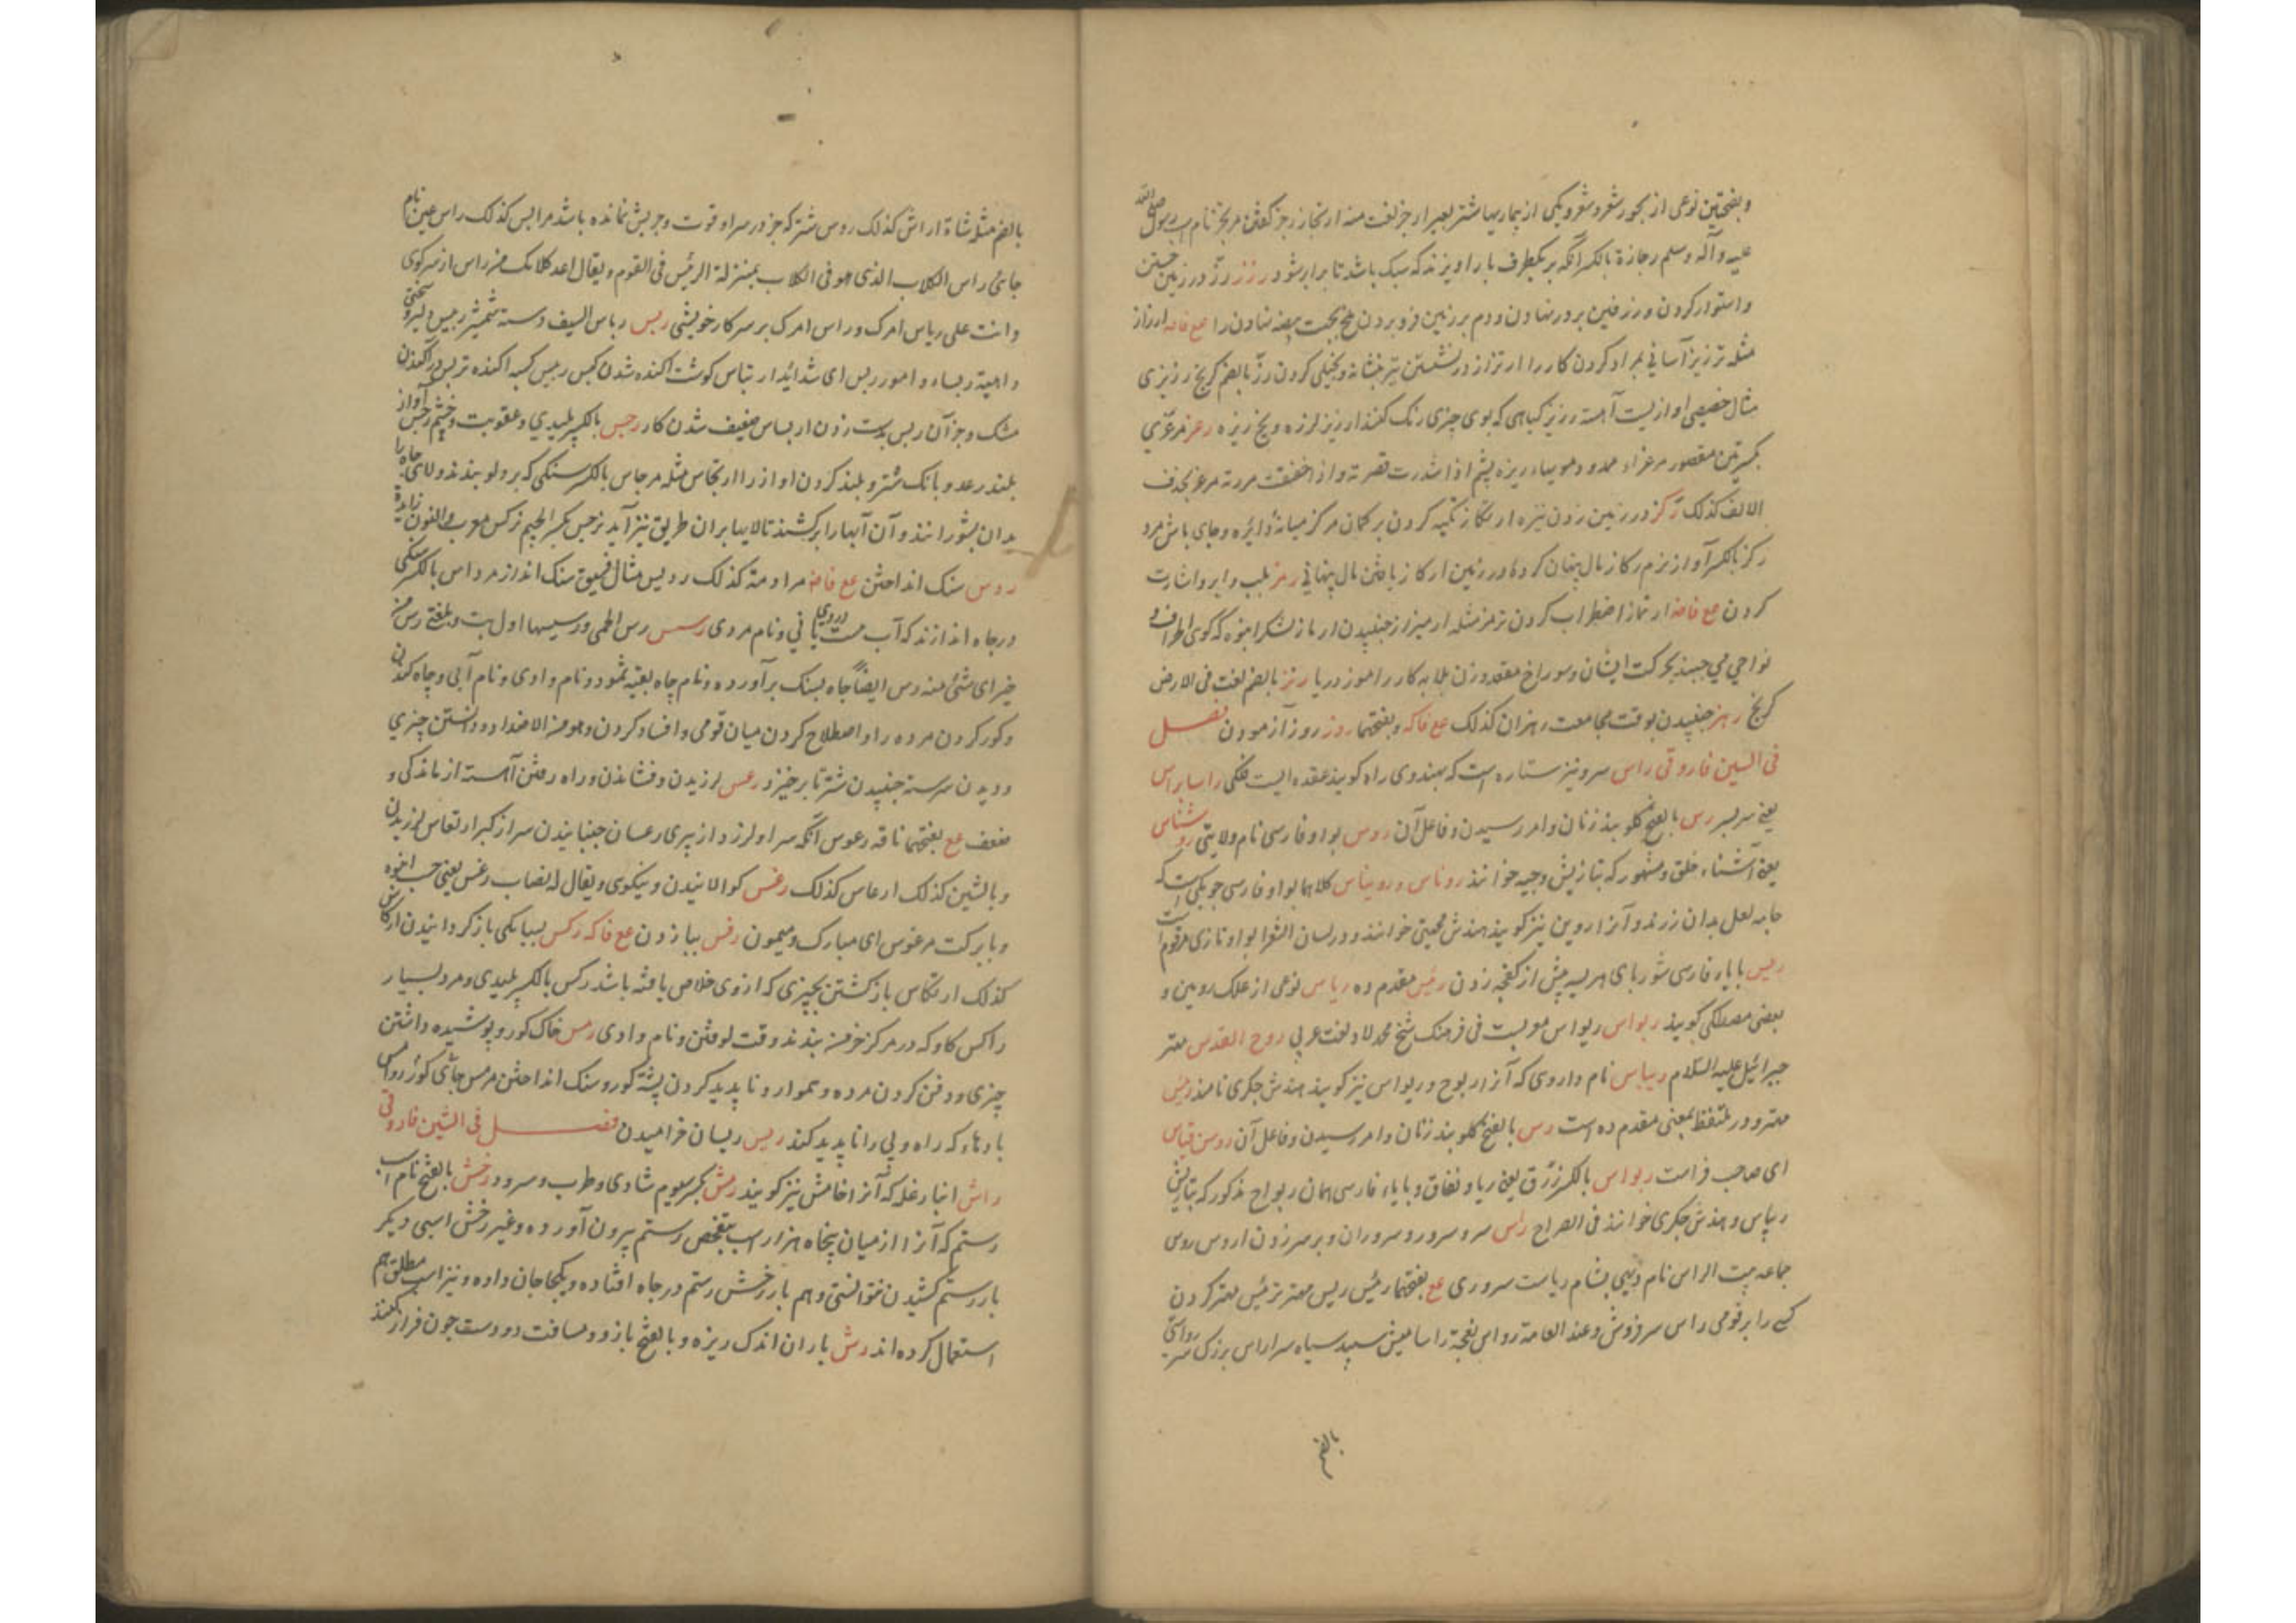 وبفتحتین نوعی از بحور شعر و شعر و یکی از بیماریها شتر بعیر ارجز نعت منه ارتجاز رجز گفتن مرتجز نام اسپ رسول صلی الله
علیه وآله وسلم رجازة بالکسر آنکه بر یکطرف بار آویزند که سبک باشد تا برابر شود رزز رزّ در زمین
واستوار کردن و رزفین بر در نهادن و دم بر زمین فرو بردن ملخ بجهت بیضه نهادن را مع فامه ارزاز
مثله ترزیز آسانی بمراد کردن کار را ارتزاز در نشستن تیر بنشانه و بخیلی کردن رزّ بالضم کرنج رزیزی
مثال خصیصی آواز پست آهسته رزیز گیاهی که بوی چیزی رنگ کنند ارزیز لرزه و یخ ریزه رعز مرعزّی
بکسرتین مقصور مرعزاء ممدود موییاء ریزه پشم اذا شدرت قصرته واذا خففت مددته مرعز بحذف
الالف کذلک رکز در زمین زدن نیزه ارتکاز تکیه کردن بر کمان مرکز میانهٔ دایره وجای باش مرد
رکز بالکسر آواز نرم رکاز مال پنهان کرده در زمین ارکاز یافتن مال پنهانی رمز بلب و ابرو اشارت
کردن مع فامه ارتماز اضطراب کردن ترمز مثله ارمیزاز جنبیدن ارماز لشکر انبوه که گوی اطراف و
نواحی می جنبد بحرکت ایشان وسوراخ مقعد وزن بلابه کار راموز دریا رنز بالضم لغت فی الارض
کرنج رهز جنبیدن بوقت مجامعت رهزان کذلک مع فاکه وبفتحها روز روز آزمودن فصل
فی السین فاروقی راس سر و نیز ستاره است که بهندوی راه گویند عقده ایست فلکی راسا براس
یعنی سربسر رس بالفتح گلو بند زنان وامر رسیدن وفاعل آن روس بواو فارسی نام ولایتی روشناس
یعنی آشناء خلق ومشهور که بتازیش وجیه خوانند روناس و رویناس کلاهما بواو فارسی چوبکی است که
جامه لعل بدان رزند و آنرا روین نیز گویند هندش مجیتی خوانند و در لسان الشعرا بواو تازی مرقوم است
ریس بایاء فارسی شوربای هریسه پیش از کفچه زدن رئیس مقدم ده ریاس نوعی از علک رومین و
بعضی مصطکی گویند ریواس ریواس معربست فی فرهنگ شیخ محمد لاد لغت عربی روح القدس مهتر
جبرائیل علیه السلام ریباس نام داروی که آنرا ریوج و ریواس نیز گویند هندش جکری نامند رئیس
مهتر و در تلفظ بمعنی مقدم ده است رس بالفتح گلو بند زنان وامر رسیدن وفاعل آن روسن قیاس
ای صاحب فراست ریواس بالکسر زرق یعنی ریا و نفاق و بایاء فارسی همان ریواج مذکور که بتازیش
ریباس وهندش جکری خوانند فی الصراح راس سر و سرور و سروران و بر سر زدن اروس روس
جماعه بیت الراس نام دیهی بشام ریاست سروری مع بفتحها رئیس ریس مهتر ترئیس مهتر کردن
کسی را بر قومی راس سرفروش وعند العامة رواس نعجة راسا میش سپید سیاه سر اراس بزرک سر رواسی
بالضم
بالضم مثله شاة اراش کذلک روس شتر که جز در سر او قوت وچربش نمانده باشد مرایس کذلک راس عین نام
جائی راس الکلاب الذی هو فی الکلاب بمنزلة الرئیس فی القوم ویقال اعد کلامک من راس از سر گوی
وانت علی ریاس امرک وراس امرک بر سر کار خویشی ربس رباس السیف دسته شمشیر ربیس دلیر و سختی
داهیة ربساء وامور ربس ای شداید ارتباس گوشت آکنده شدن کبس ربیس کیسه آکنده تربیس آکندن
مشک وجز آن ربس بدست زدن اربساس ضعیف شدن کار رجس بالکسر پلیدی وعقوبت وخشم رجس آواز
بلند رعد و بانگ شتر و بلند کردن آواز را ارتجاس مثله مرجاس بالکسر سنگی که بر دلو بندند ولای چاه را
بدان بشورانند و آن آبها را برکشند تا لایها بر آن طریق نیز آید نرجس بکسر الجیم نرگس معرب والنون زایدة
ردس سنگ انداختن مع فامه مرادسة کذلک ردیس مثال فسیق سنگ انداز مرداس بالکسر سنگی
در چاه اندازند که آب هست دروی یا نی ونام مردی رسس رس الحمی ورسیسها اول تب وبلغنی رس من
خبر ای شئ منه رس ایضاً چاه بسنگ برآورده ونام چاه بقیه ثمود ونام وادی ونام آبی و چاه کندن
وگور کردن مرده را و اصطلاح کردن میان قومی وافساد کردن وهو من الاضداد و دانستن چیزی
ودیدن سرسته جنبیدن شتر تا برخیزد رعس لرزیدن وفشاندن وراه رفتن آهسته از ماندگی و
ضعف مع بفتحها ناقه رعوس آنکه سر او لرزد از پیری رعسان جنبانیدن سر از کبر ارتعاس لرزیدن
وبالشین کذلک ارعاس کذلک رغس گوالانیدن ونیکوی ویقال له نصاب رغس یعنی حسب انبوه
وبابرکت مرغوس ای مبارک ومیمون رفس بپا زدن مع فاکه رکس بسیانگی باز گردانیدن ارکاس
کذلک ارتکاس بازگشتن بچیزی که از وی خلاص یافته باشد رکس بالکسر پلیدی ومردم بسیار
راکس گاو که در مرکز خرمن بندند وقت کوفتن ونام وادی رمس خاک گور و پوشیده داشتن
چیزی و دفن کردن مرده وهموار و ناپدید کردن پشته گور وسنگ انداختن مرمس جای گور روامس
بادهاء که راه و پی را ناپدید کند ریس ریسان خرامیدن فصل فی الشین فاروقی
راش انبار غله که آنرا خامش نیز گویند رامش بکسر میوم شادی وطرب وسرود رخش بالفتح نام اسپ
رستم که آنرا از میان پنجاه هزار اسپ بتفحص رستم بیرون آورده وغیر رخش اسپی دیگر
بار رستم کشیدن نتوانستی وهم بار رخش رستم در چاه افتاده ویکجا جان داده ونیز اسپ مطلق هم
استعمال کرده اند رش باران اندک ریزه وبالفتح بازو ومسافت دو دست چون فراز کنند